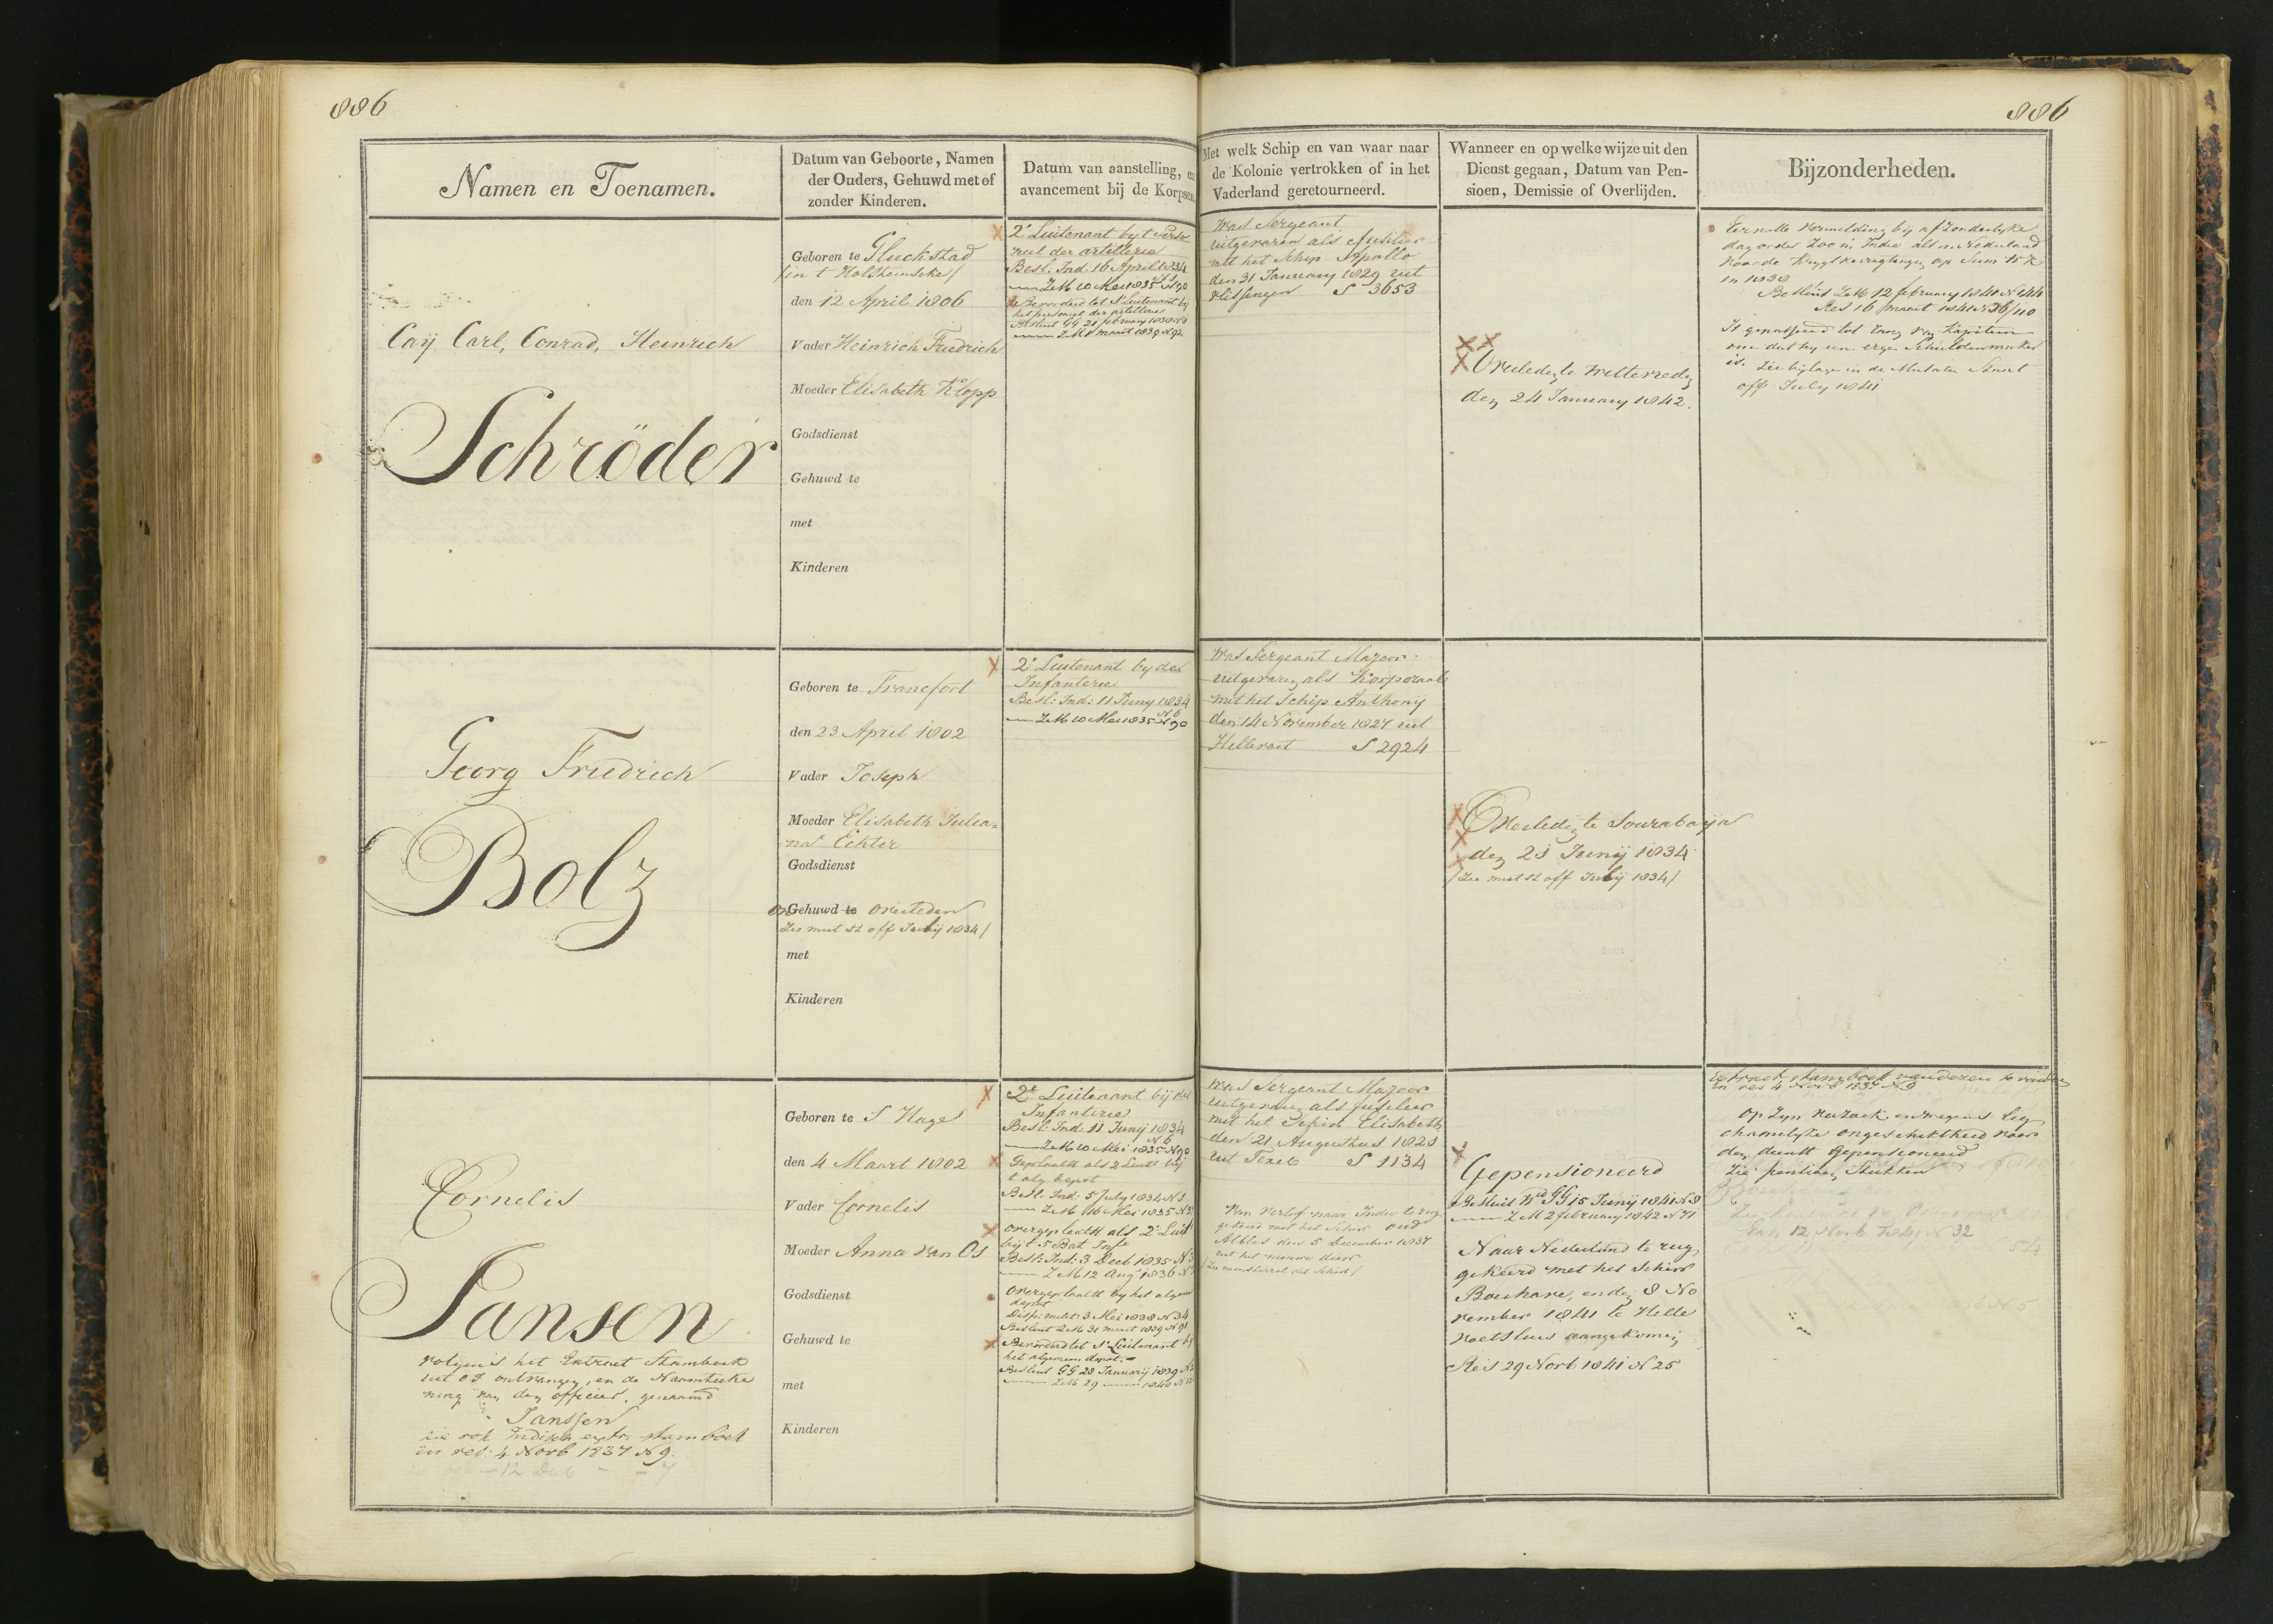 886
886
Namen en Toenamen.
Datum van Geboorte, Namen
der Ouders, Gehuwd met of
zonder Kinderen.
Datum van aanstelling, en
avancement bij de Korpsen.
Met welk Schip en van waar naar
de Kolonie vertrokken of in het
Vaderland geretourneerd.
Wanneer en op welke wijze uit den
Dienst gegaan, Datum van Pen-
sioen, Demissie of Overlijden.
Bijzonderheden.
Caÿ Carl, Conrad, Heinrich
Schröder
Geboren te Gluckstad
/in t Holsteinsche/
den 12 April 1806
Vader Heinrich Friedrich
Moeder Elisabeth Klopp
Godsdienst
Gehuwd te
met
Kinderen
2e Luitenant by t Perso
neel der artillerie
Besl: Ind. 16 April 1834
ZM 10 Mei 1835 N 90
Bevorderd tot 1e Luitenant by
het personeel der artillerie
Besluit GG 21 february 1839 N
ZM maart 1839 N 92
Was Sergeant
uitgevaren als fuselier
met het Schip Apollo
den 31 January 1829 uit
Vlissingen S 3653
Overleden te Weltevreden
den 24 January 1842.
Eervolle Vermelding bij afzonderlyke
dag order zoo in Indie als in Nederland
voor de krygsverrigtingen op Sum: W: K
in 1838
Besluit ZM 12 february 1841 N 144
Res 16 maart 1841 N 36/110
Is gepasseerd tot rang van Kapitein
om dat hy een erge Schuldenmaker
is. Zie bijlage in de Mutatie Staat
off July 1841
Georg Friedrich
Bolz
Geboren te Francfort
den 23 April 1802
Vader Joseph
Moeder Elisabeth Julia=
na Echter
Godsdienst
onGehuwd te overleden
Zie mut st off July 1834/
met
Kinderen
2e Luitenant by der
Infanterie
Besl: Ind: 11 Juny 1834
N 6
ZM 10 Mei 1835 N 90
Was Sergeant Majoor
uitgevaren als Korporaal
met het Schip Anthony
den 14 November 1827 uit
Hellevoet S 2924
Overleden te Sourabaija
den 21 Junij 1834
/Zie mut st off July 1834/
Cornelis
Jansen
volgens het Extract Stamboek
uit OI ontvangen, en de Naamteeke
ning van den officier, genaamd
Janssen
zie ook Indisch extr. stamboek
in res: 4 Novb 1837 N 9.
Geboren te S Hage
den 4 Maart 1802
Vader Cornelis
Moeder Anna van Os
Godsdienst
Gehuwd te
met
Kinderen
2e Luitenant bij de
Infanterie
Besl: Ind: 11 Junij 1834
N 6
ZM 10 Mei 1835 N 90
Geplaatst als 2 Luitt by
t alg depot
Besl: Ind: 5 July 1834 N 1
ZM 10 Mei 1835 N
overgeplaatst als 2e Luit
bij t 5 Bat Infe
Besl: Ind: 3 Decb 1835 N
ZM 12 Aug 1836 N
Overgeplaatst by het algem
depot
Disp: milit: 3 Mei 1838 N 34
Besluit ZM 31 maart 1839 N 91
Bevorderd tot 1e Luitenant by
het algemeen depot.
Besluit GG 28 Januarij 1839 N
ZM 29 1840 N
Was Sergeant Majoor
uitgevaren als fuselier
met het Schip Elisabeth
den 21 Augustus 1821
uit Texel S 1134
Van Verlof naar Indie terug
gekeerd met het Schip oud
Alblas den 5 December 1837
uit het nieuwe diep
/Zie monsterrol dat Schip/
Gepensioneerd
Besluit GG 15 Junij 1841 N 8
ZM 2 february 1842 N 71
Naar Nederland te rug
gekeerd met het Schip
Boerhave, en den 8 No
vember 1841 te Helle
voetsluis aangekomen
Res 29 Novb 1841 N 25
Extract stamboek
in res 4 Novb 1837 N 9
op zyn verzoek en wegens lig
chamelyke ongeschiktheid voor
den dienst Gepensioneerd
Zie pensioen Stukken